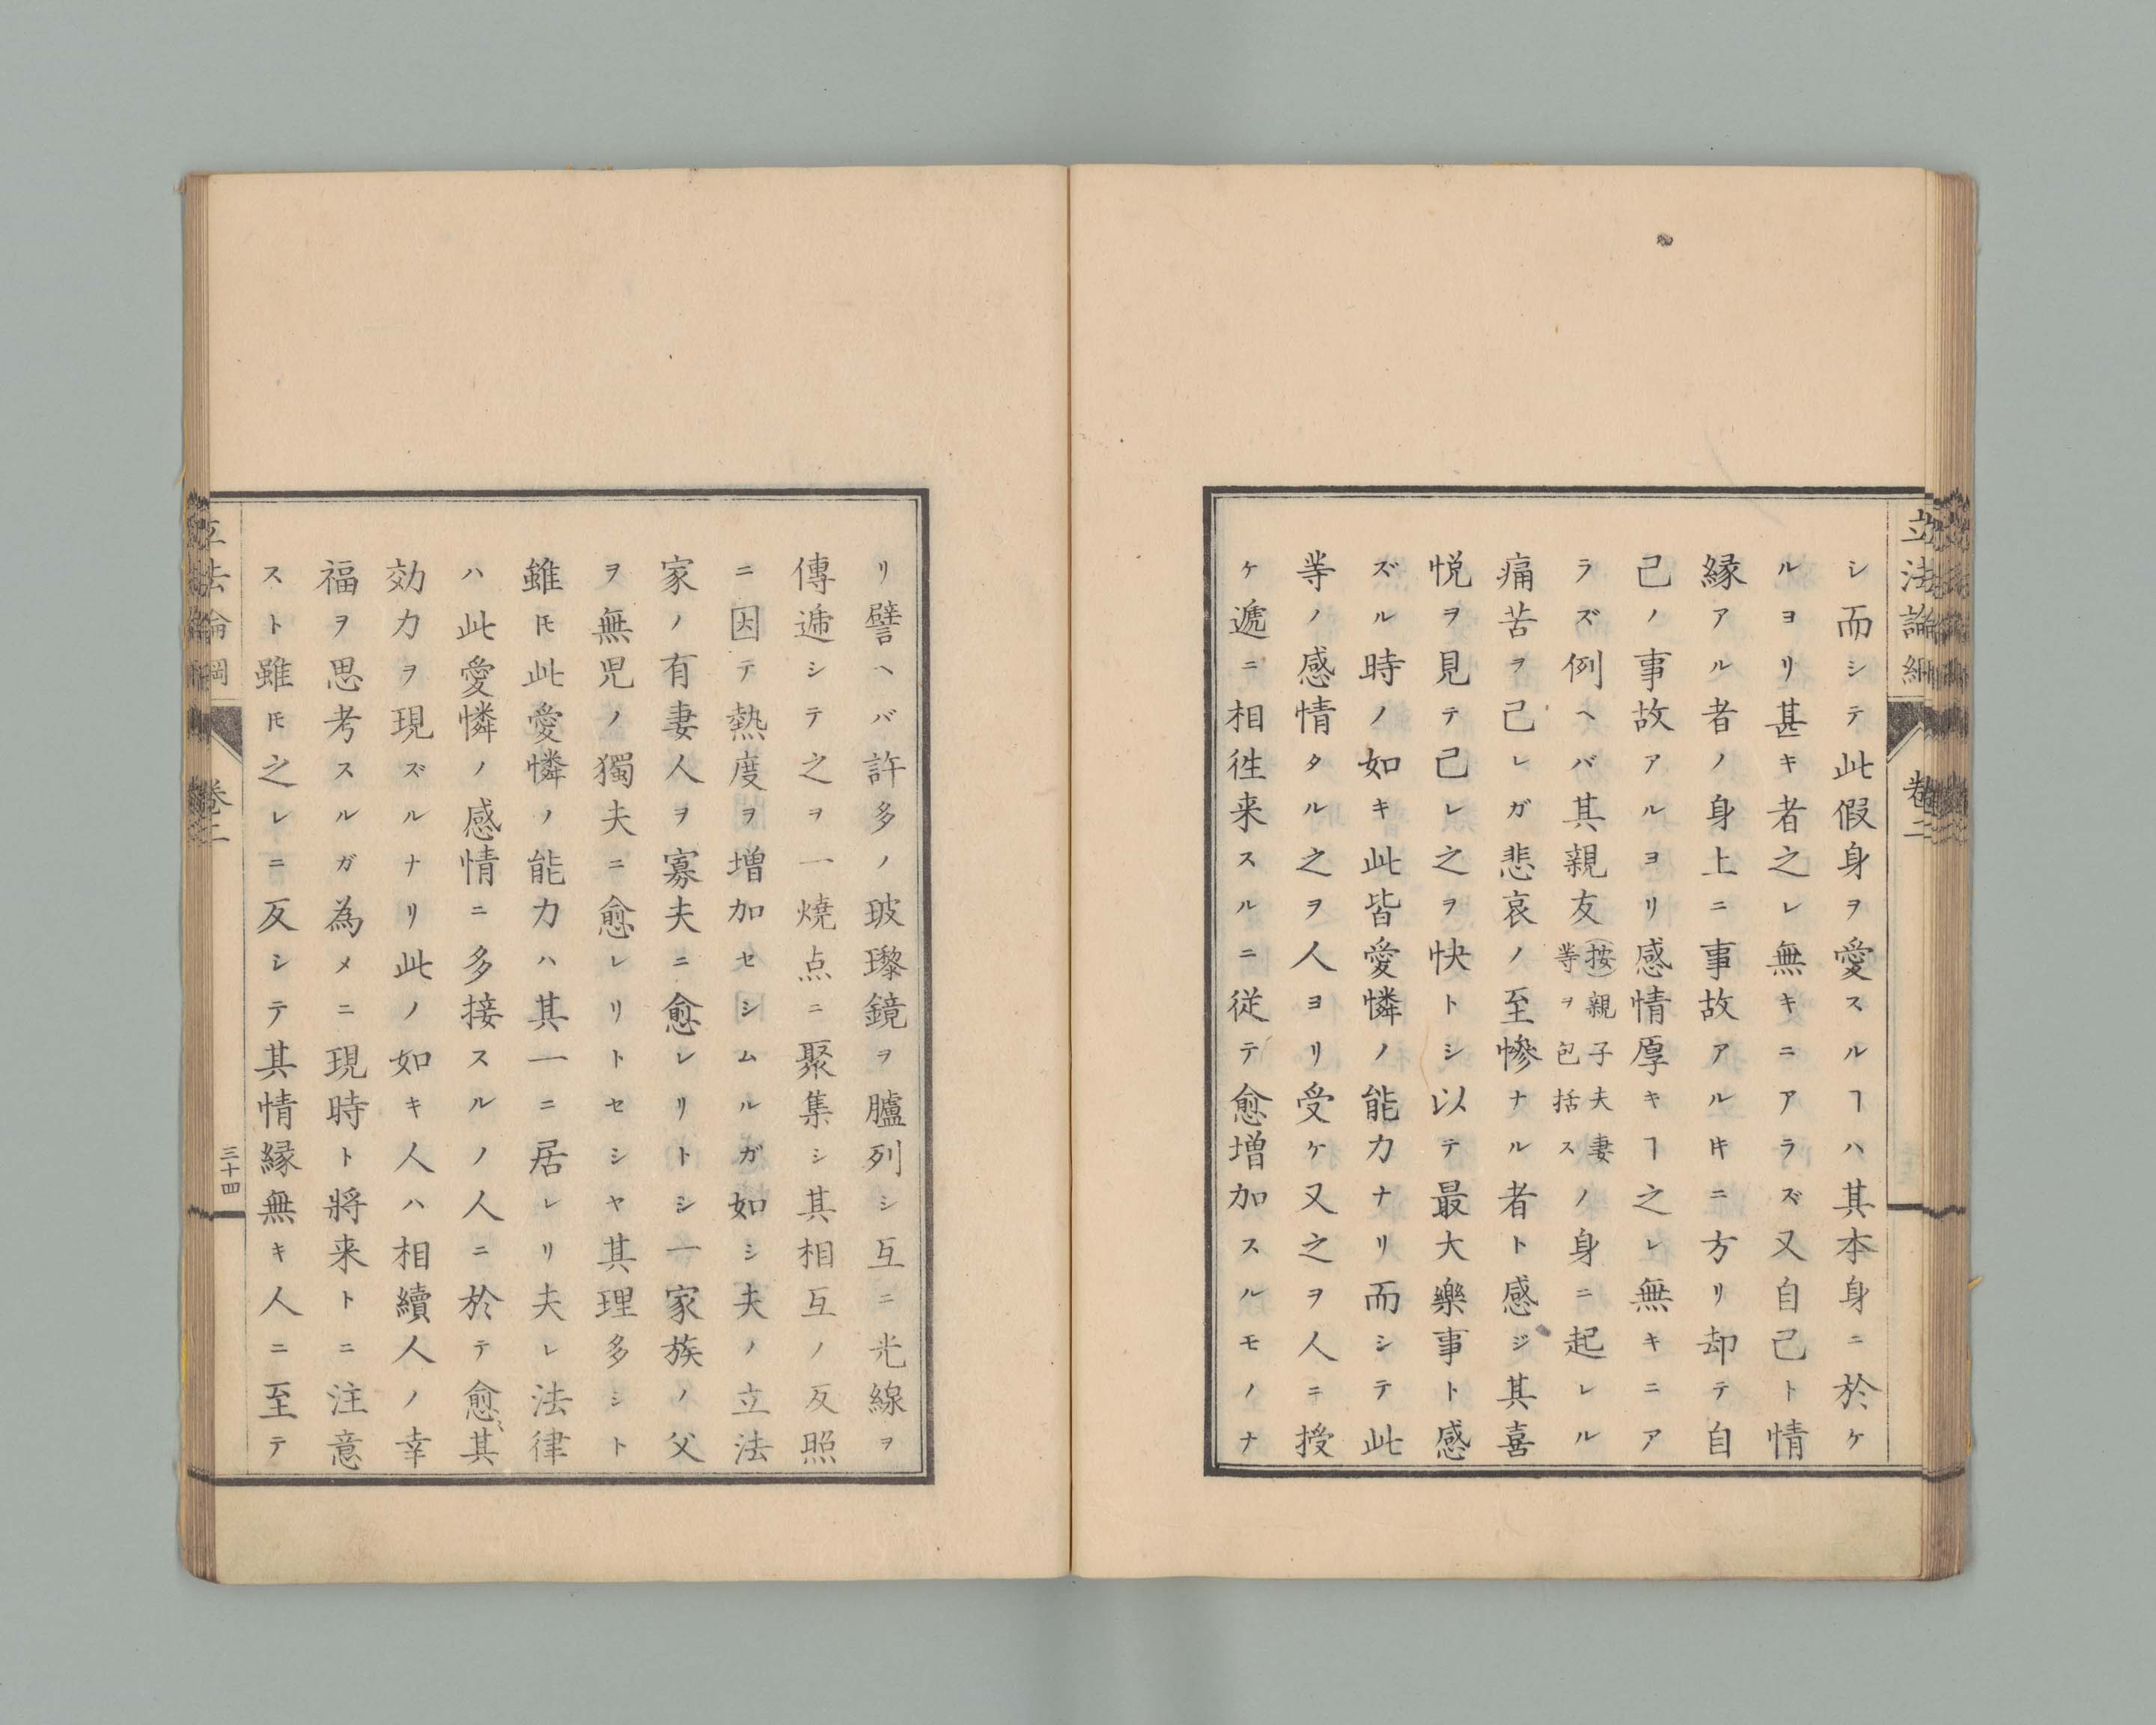 立法論綱
卷二
シ而シテ此假身ヲ愛スルヿハ其本身ニ於ケ
ルヨリ甚キ者之レ無キニアラズ又自己ト情
縁アル者ノ身上ニ事故アルヰニ方リ却テ自
己ノ事故アルヨリ感情厚キヿ之レ無キニア
ラズ例ヘバ其親友(按)親子夫妻等ヲ包括スノ身ニ起レル
痛苦ヲ己レガ悲哀ノ至慘ナル者ト感ジ其喜
悦ヲ見テ己レ之ヲ快トシ以テ最大樂事ト感
ズル時ノ如キ此皆愛憐ノ能力ナリ而シテ此
等ノ感情タル之ヲ人ヨリ受ケ又之ヲ人ニ授
ケ遞ニ相徃来スルニ従テ愈増加スルモノナ
リ譬ヘバ許多ノ玻瓈鏡ヲ臚列シ互ニ光線ヲ
傳遞シテ之ヲ一燒点ニ聚集シ其相互ノ反照
ニ因テ熱度ヲ増加セシムルガ如シ夫ノ立法
家ノ有妻人ヲ寡夫ニ愈レリトシ一家族ノ父
ヲ無児ノ獨夫ニ愈レリトセシヤ其理多シト
雖𪜈此愛憐ノ能力ハ其一ニ居レリ夫レ法律
ハ此愛憐ノ感情ニ多接スルノ人ニ於テ愈其
効力ヲ現ズルナリ此ノ如キ人ハ相續人ノ幸
福ヲ思考スルガ為メニ現時ト將来トニ注意
スト雖𪜈之レニ反シテ其情縁無キ人ニ至テ
立法論綱
卷二
三十四